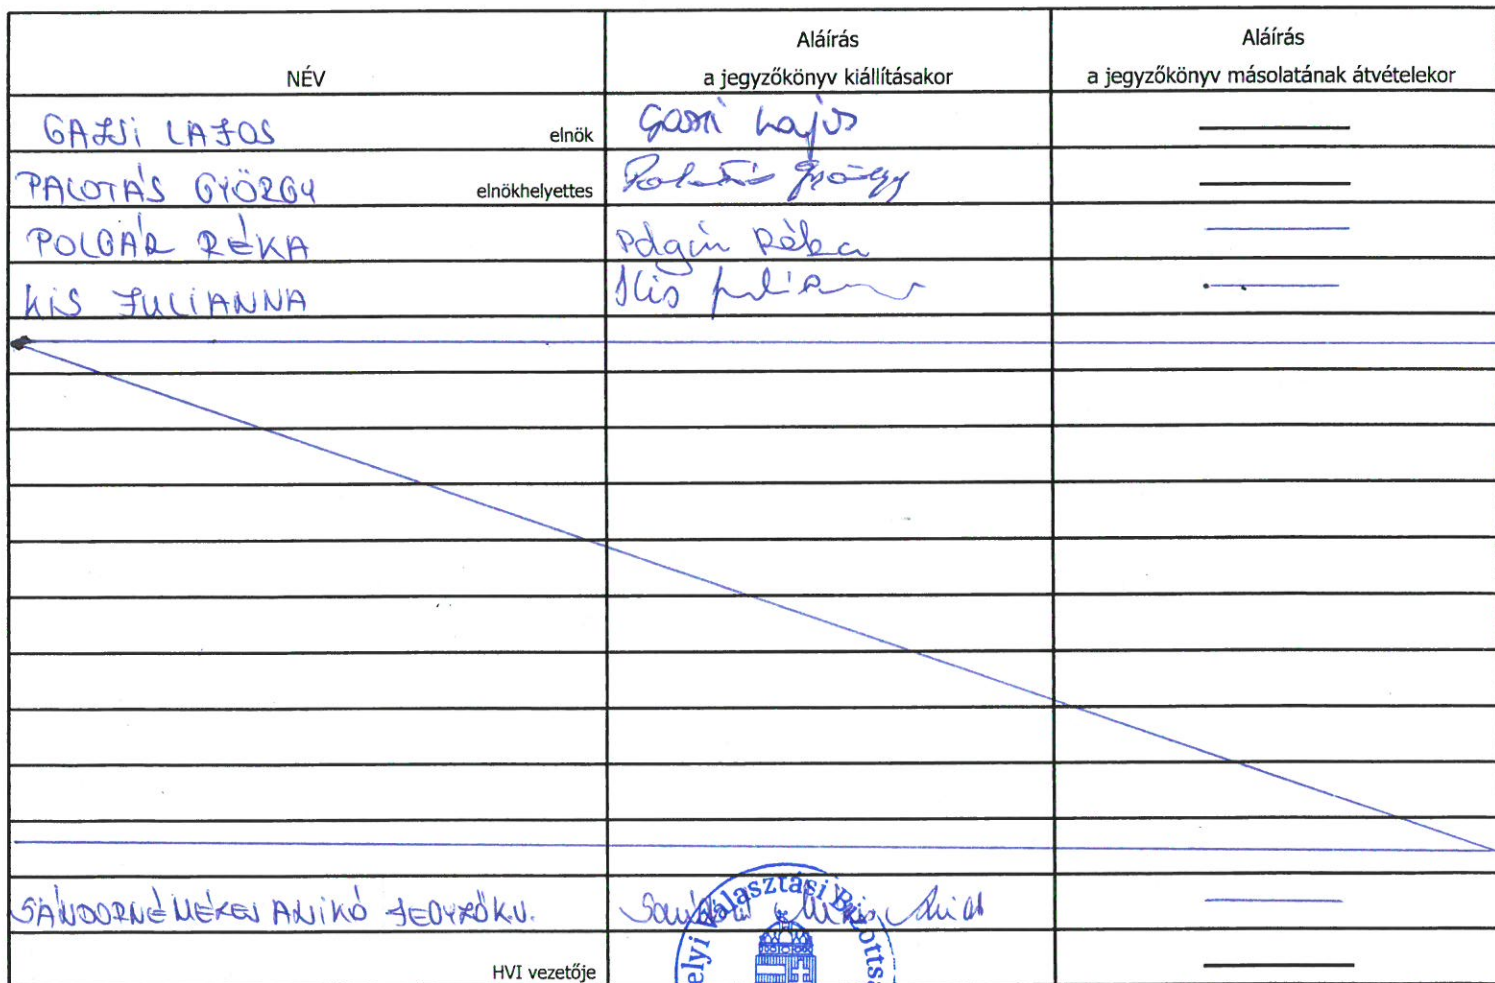 NÉV
Aláírás
a jegyzőkönyv kiállításakor
Aláírás
a jegyzőkönyv másolatának átvételekor
LAJOS elnök Lajos
PALOTÁS GYÖRGY elnökhelyettes Palotás György
POLGÁR RÉKA Polgár Réka
KIS JULIANNA Kis
SÁNDORNÉ ANIKÓ JEGYZŐKV.
elyi Választási Bizotts
HVI vezetője